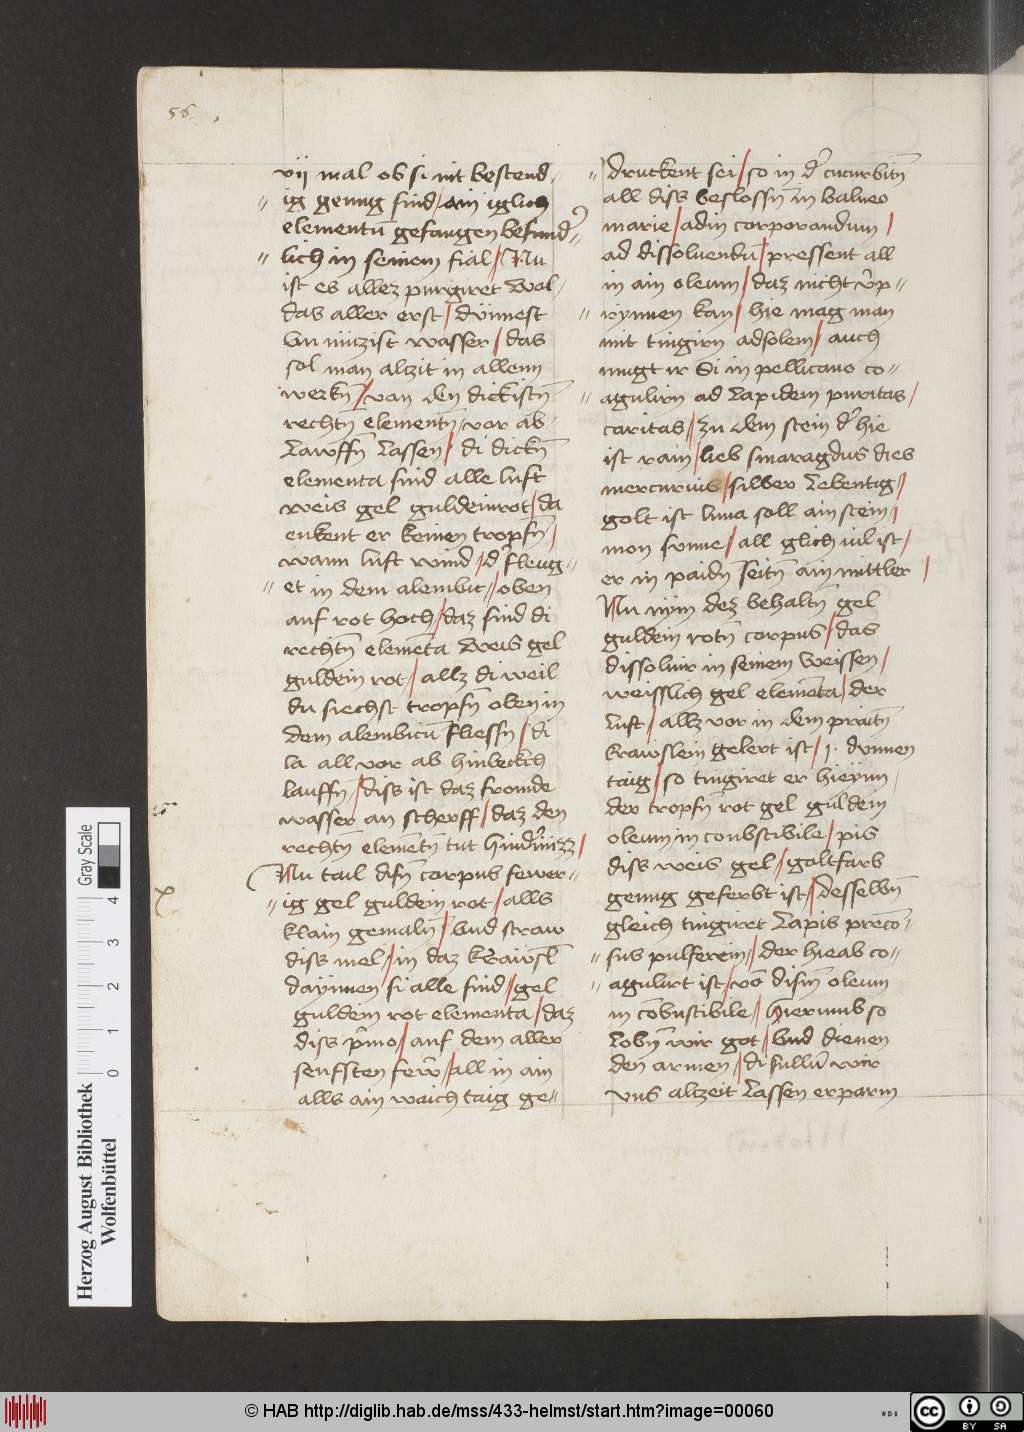 56
vij mal ob si nit bestend
ig genug sind / ain iglich
elementū gefangen besund
lich in seinem fial / Nu
ist es allez purgiret Wol
das aller erst / dünnest
Vn nützist wasser / das
sol man alzit in allenn
werkn̄ / van den dickistn̄
rechtn̄ elementn̄ vor ab
Lawffn̄ Lassen / di dickn̄
elementa sind alle luft
weis gel guldeinrot / da
enkent er keinen tropfn̄ /
wann luft wind / d' fleug
et in dem alembic / oben
auf rot hoch / daz sind di
rechtn̄ elemēta Weis gel
guldein rot / allz di weil
du siechst tropfn̄ oben in
dem alembicū fliessn̄ / di
la all vor ab hin
lauffn̄ / diss ist daz fromde
wasser an scherff / daz den
rechtn̄ elemētn̄ tut hind'nizz /
Nu tail disn̄ corpus fewer
ig gel guldein rot / alls
klain gemaln̄ / Vnd straw
diss mel / in daz
dāynnen si alle sind / gel
guldein rot elementa / daz
diss p̄mo / auf dem aller
senfsten few̄r / all in ain
alls ain waich taig ge
druckent sei / so in d' cucurbitn̄
all diss beslossn̄ in balneo
marie / ad in corporandum /
ad dissoluendū / pressent all
in ain oleum / daz nicht v'p
rynnen kan / hie mag man
mit tingirn ad solem / auch
mugt ir Si in pellicano co
agulirn ad Lapidem puritas /
caritas / zu dem stein d' hie
ist rain / lieb smaragdus dies
mercurius / silber Lebentig /
golt ist luna soll ain stein /
mon sunne / all glich vil ist /
er in paidn seitn̄ ain mittler /
Nu nym dez behaltn̄ gel
guldein rotn̄ corpus / das
dissoluir in seinem Weissen /
weisslich gel elemēta / der
luft / allz vor in dem
gelert ist / j. dunnen
taig / so tingiret er hieynn
der tropfn̄ rot gel guldein
oleum in conbstibile / pis
diss weis gel / goltfarb
genug geferbt ist / desselbn̄
gleich tingiret Lapis precō
sus pulferein / der hieab co
agulirt ist / vō disin̄ oleum
in cōbustibile / hierumb so
Lobn̄ wir got / Vnd dienen
den armen / di sullū wir
vns alzeit Lassen erparm
Herzog August Bibliothek
Wolfenbüttel
Gray Scale
0 1 2 3 4
© HAB http://diglib.hab.de/mss/433-helmst/start.htm?image=00060
cc BY SA